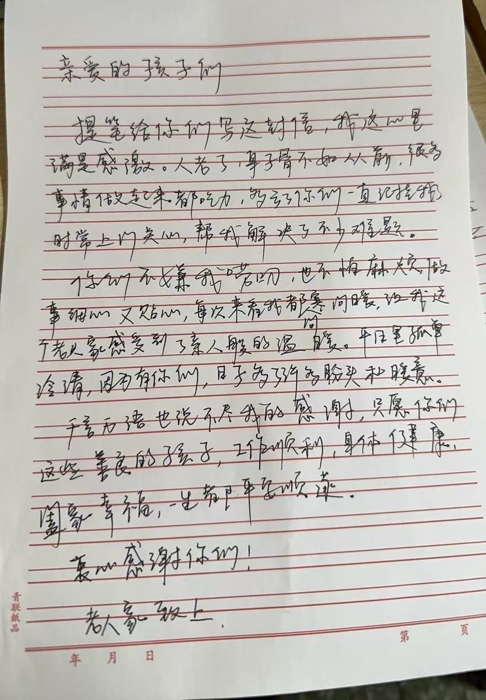 亲爱的孩子们
提笔给你们写这封信，我这心里
满是感激。人老了，身子骨不如从前，很多
事情做起来都吃力，多亏了你们一直记挂我
时常上门关心，帮我解决了不少难题。
你们不嫌我唠叨，也不怕麻烦，做
事细心又贴心，每次来看我都寒问暖，让我这
问
个老人家感受到了亲人般的温暖。平日里孤单
冷清，因为有你们，日子多了许多盼头和暖意。
千言万语也说不尽我的感谢，只愿你们
这些善良的孩子，工作顺利，身体健康，
阖家幸福，一生都平安顺遂。
衷心感谢你们！
老人家敬上
青联纸品
年 月 日
第 页